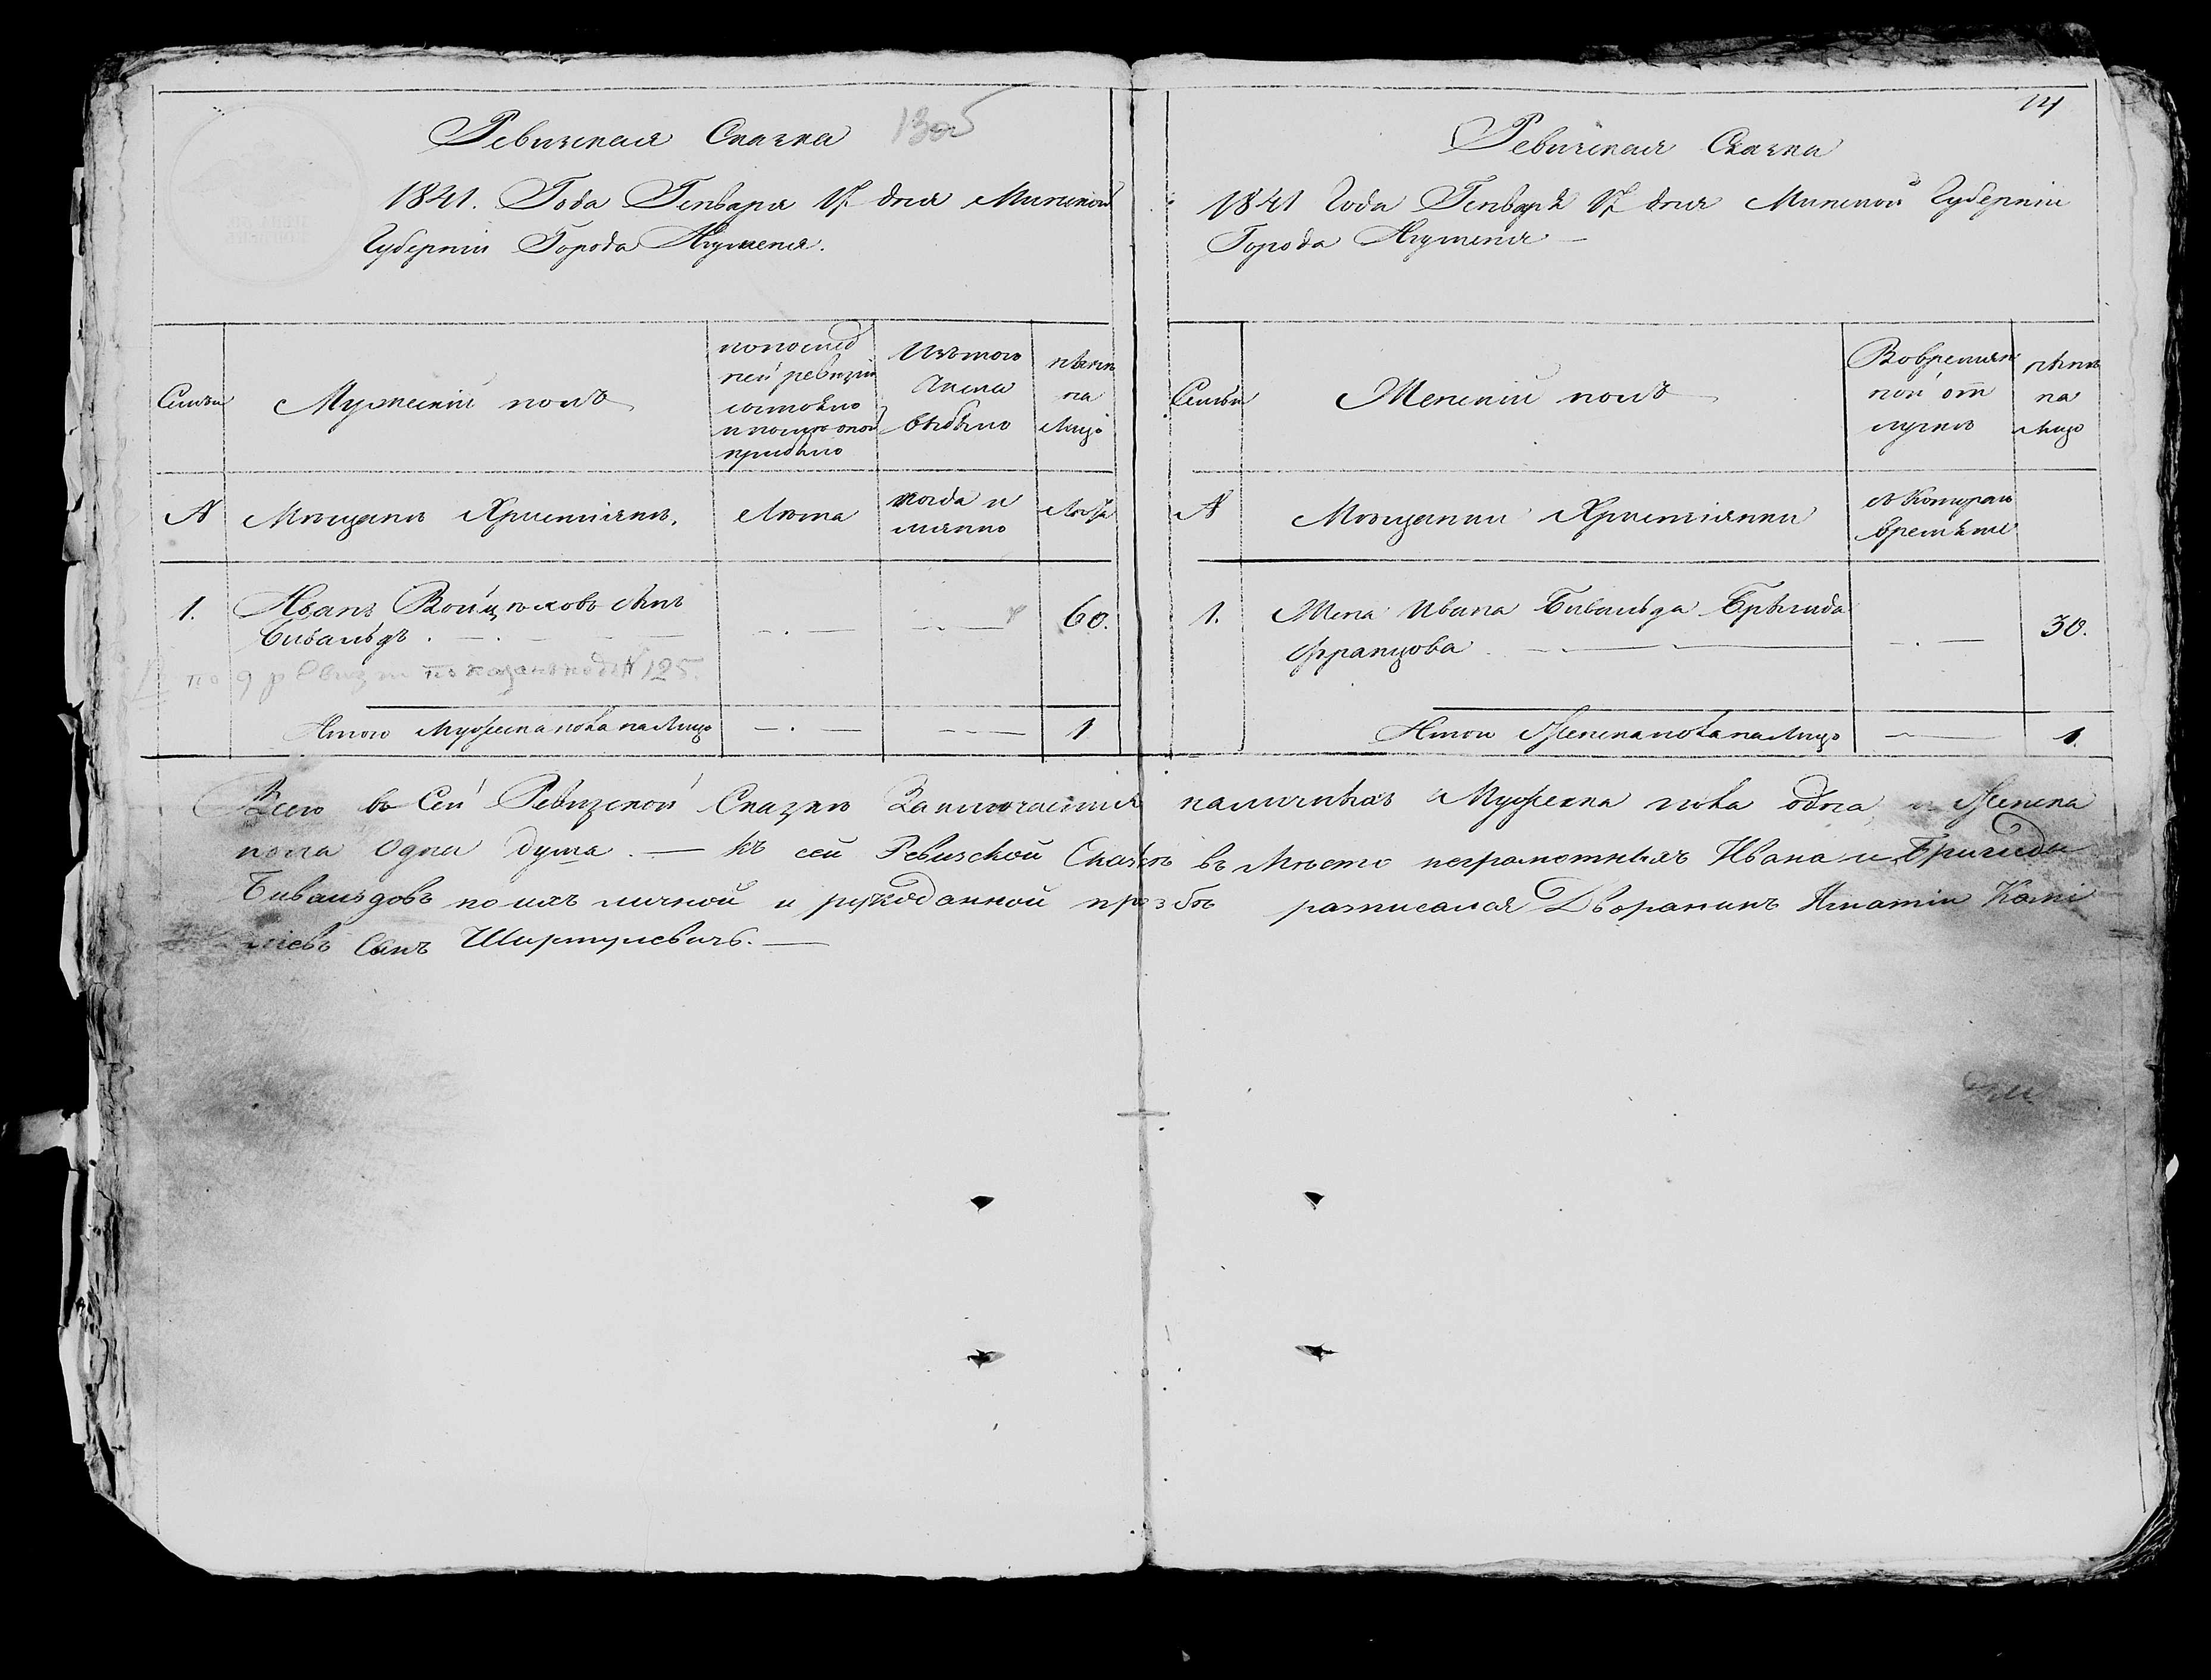 Ревизская Сказка 13об
1841. Года Генваря дня Минской
Губерніи Города Игуменя.
Семьи
Мужескій полъ
по послед
ней ревизіи
состояло
и после оной
прибыло
Изъ того
Числа
выбыло
нынѣ
на
Лицо
N
Мѣщанъ Христіянъ.
Лѣта
когда и
имянно
Лѣта
1.
Иванъ Войцѣховъ сынъ
Бивальдъ.
60.
по 9 ревизіи показанъ подъ N 125.
Итого Мужеска пола на Лицо
1
14
Ревизская Сказка
1841 Года Генваря дня Минской Губерніи
Города Игуменя
Семьи
Женскій полъ
Во времян
ной от
лучкѣ
нынѣ
на
Лицо
N
Мѣщанки Христіянки
съ Котораго
времяни
1.
Жена Ивана Бивальда Брыгида
Францова
30.
Итого Женска пола на Лицо
1.
Всего въ Сей Ревизской Сказкѣ Заключается наличныхъ Мужеска пола одна и Женска
пола Одна душа. — Къ сей Ревизской Сказкѣ въ Место неграмотныхъ Ивана и Бригиды
Бивальдовъ по ихъ личной и рукоданной прозбѣ разписался Дворанинъ Игнатій
Сынъ